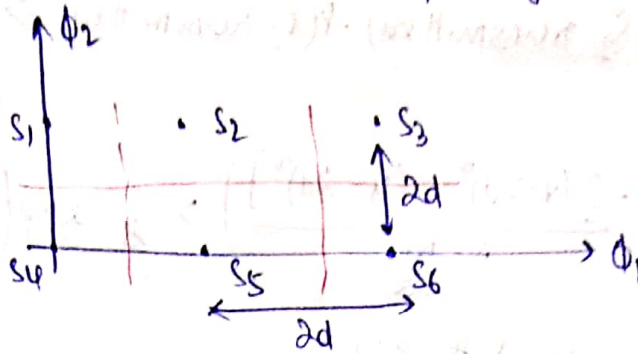 ϕ2
S1 S2 S3
2d
S4 S5 S6 ϕ1
2d